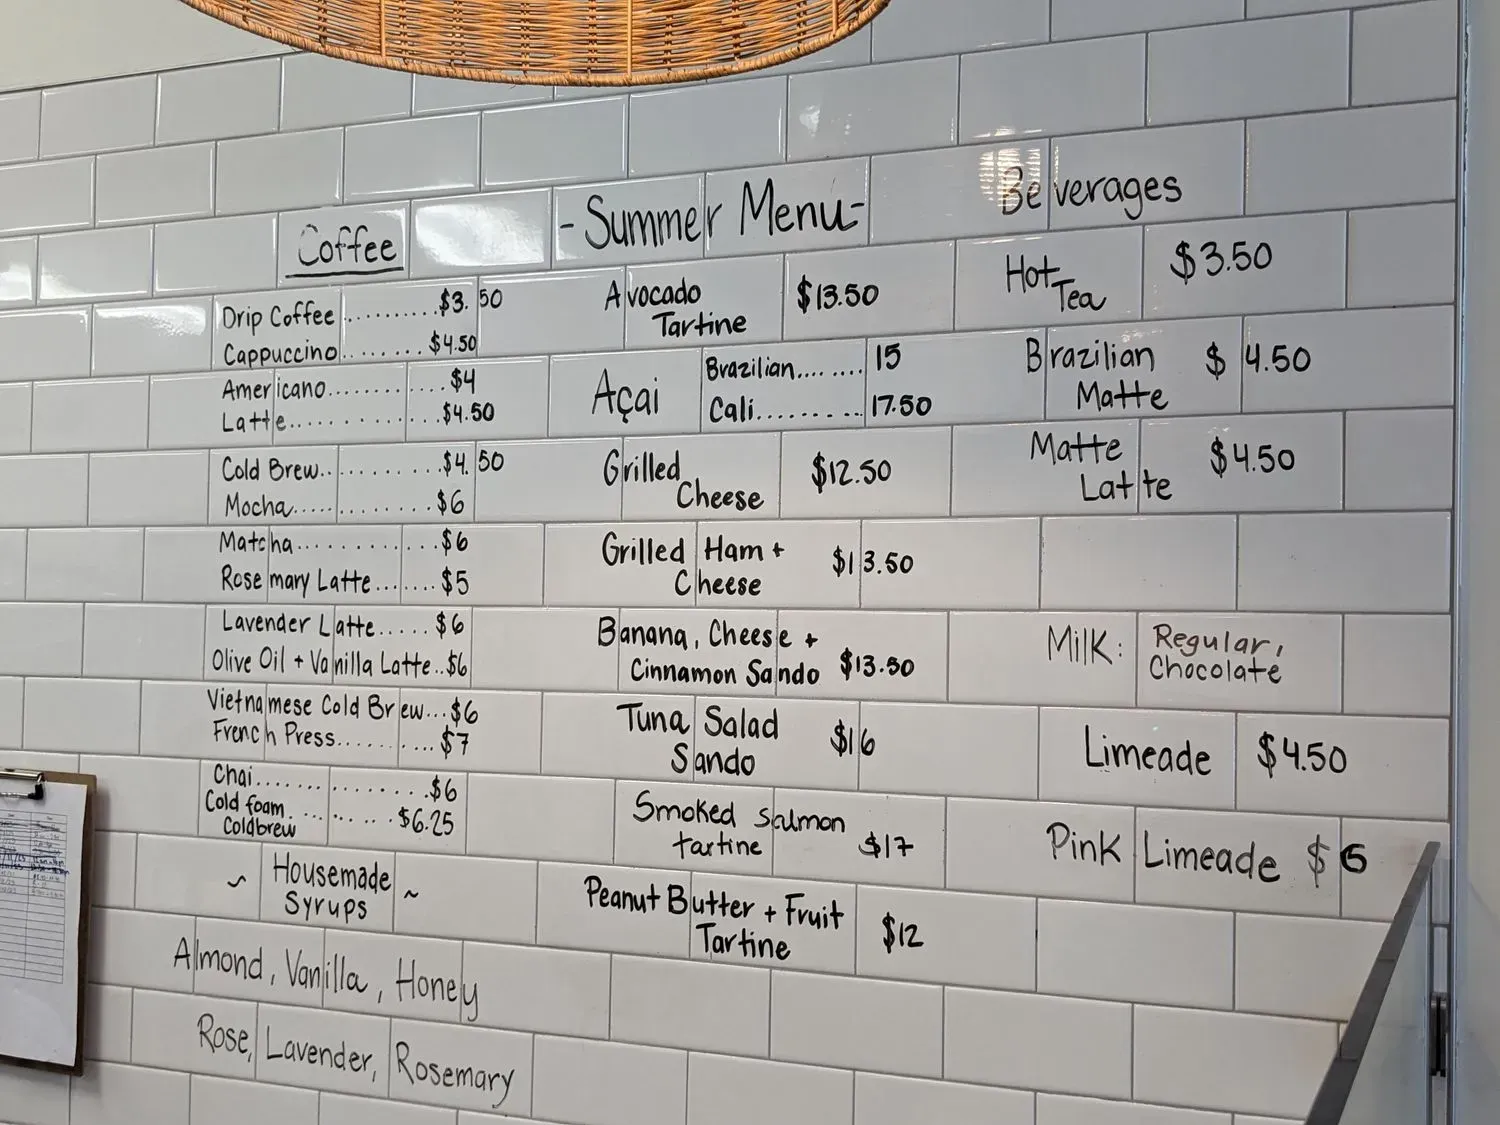 Coffee
Drip Coffee..........$3.50
Cappuccino........$4.50
Americano............$4
Latte..............$4.50
Cold Brew...........$4.50
Mocha............$6
Matcha.............$6
Rosemary Latte.......$5
Lavender Latte.....$6
Olive Oil + Vanilla Latte..$6
Vietnamese Cold Brew...$6
French Press...........$7
Chai...............$6
Cold foam
Coldbrew..........$6.25
~ Housemade ~
Syrups
Almond, Vanilla, Honey
Rose, Lavender, Rosemary
-Summer Menu-
Avocado $13.50
Tartine
Açai
Brazilian........15
Cali............17.50
Grilled $12.50
Cheese
Grilled Ham + $13.50
Cheese
Banana, Cheese +
Cinnamon Sando $13.50
Tuna Salad $16
Sando
Smoked salmon
tartine $17
Peanut Butter + Fruit $12
Tartine
Beverages
Hot $3.50
Tea
Brazilian $4.50
Matte
Matte $4.50
Latte
Milk: Regular,
Chocolate
Limeade $4.50
Pink Limeade $5